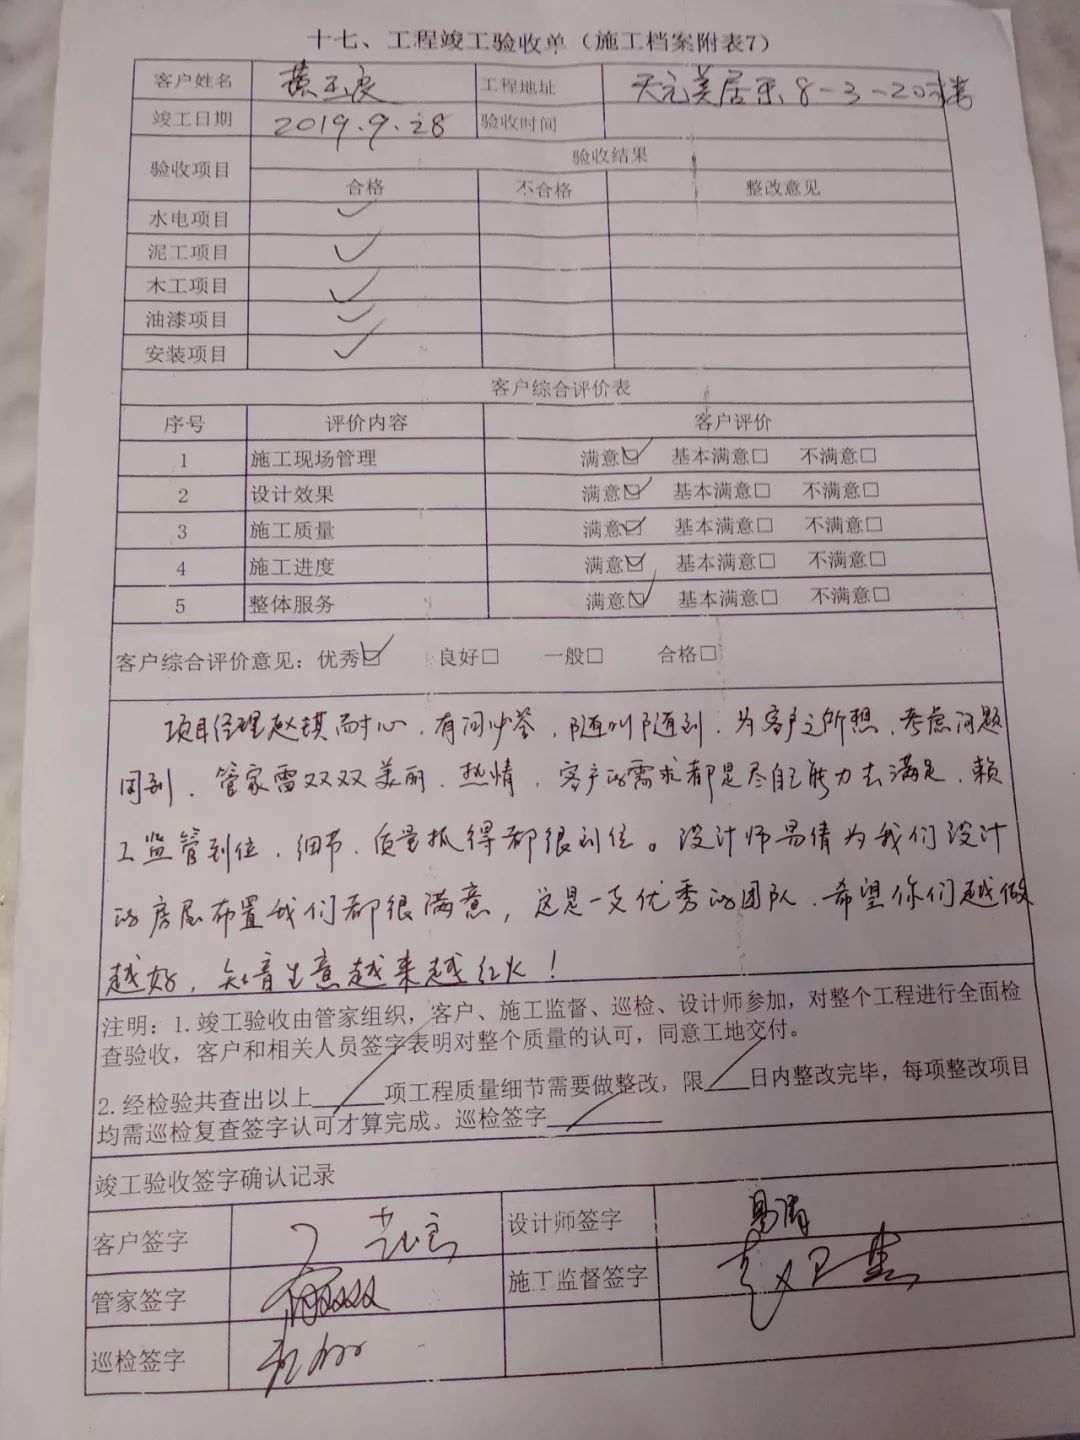 十七、工程竣工验收单（施工档案附表7）
客户姓名 黄玉良 工程地址 天元美居乐8-3-20楼
竣工日期 2019.9.28 验收时间
验收项目 验收结果
合格 不合格 整改意见
水电项目 ✓
泥工项目 ✓
木工项目 ✓
油漆项目 ✓
安装项目 ✓
客户综合评价表
序号 评价内容 客户评价
1 施工现场管理 满意☑ 基本满意□ 不满意□
2 设计效果 满意☑ 基本满意□ 不满意□
3 施工质量 满意☑ 基本满意□ 不满意□
4 施工进度 满意☑ 基本满意□ 不满意□
5 整体服务 满意☑ 基本满意□ 不满意□
客户综合评价意见：优秀☑ 良好□ 一般□ 合格□
项目经理赵琪耐心，有问必答，随叫随到，为客户之所想，考虑问题
周到、管家雷双双美丽、热情，客户的需求都是尽自己能力去满足，赖
工监管到位，细节、质量抓得都很到位。设计师易倩为我们设计
的房屋布置我们都很满意，这是一支优秀的团队，希望你们越做
越好，知音生意越来越红火！
注明：1.竣工验收由管家组织，客户、施工监督、巡检、设计师参加，对整个工程进行全面检
查验收，客户和相关人员签字表明对整个质量的认可，同意工地交付。
2.经检验共查出以上______项工程质量细节需要做整改，限____日内整改完毕，每项整改项目
均需巡检复查签字认可才算完成。巡检签字__________
竣工验收签字确认记录
客户签字 设计师签字 易倩
管家签字 雷双双 施工监督签字
巡检签字